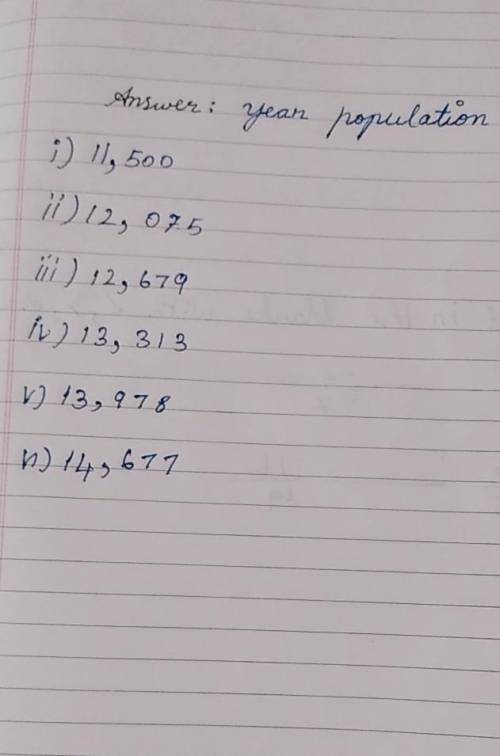 Answer: year population
i) 11,500
ii) 12, 075
iii) 12,679
iv) 13, 313
v) 13,978
vi) 14,677